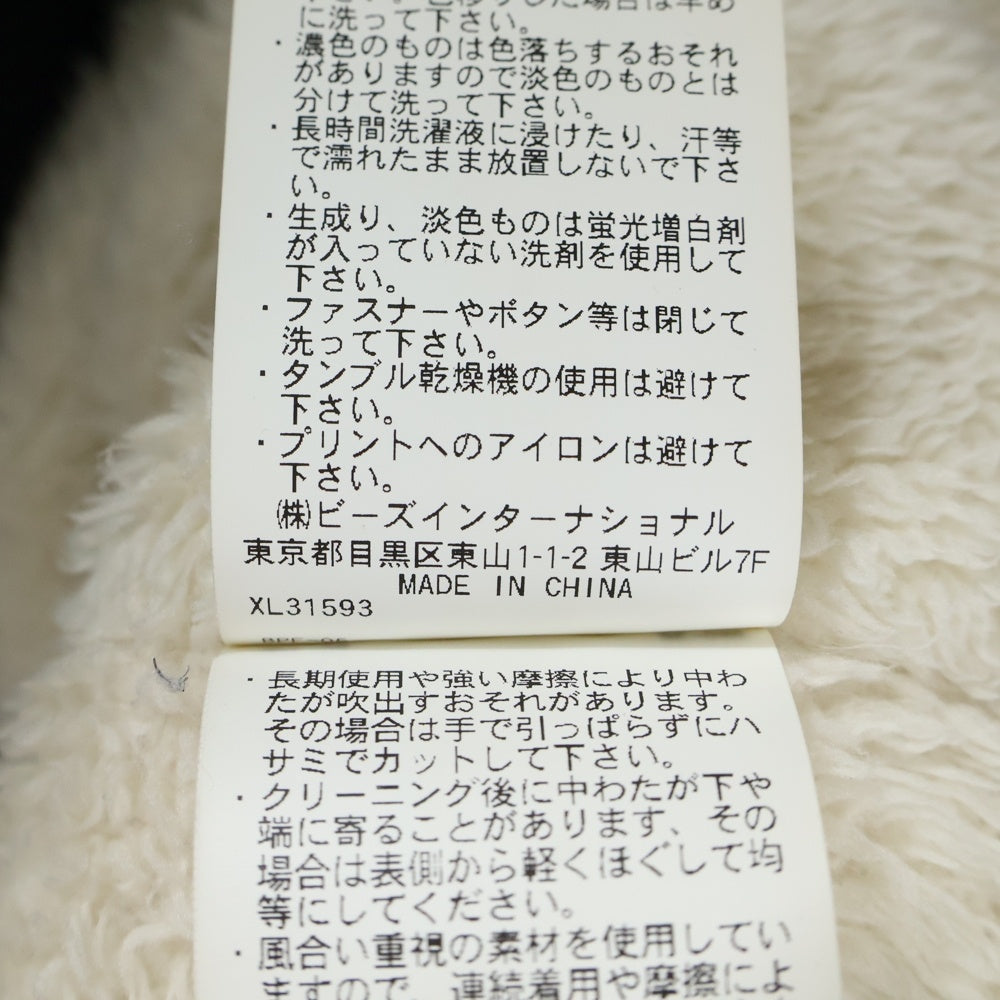 に洗って下さい。
・濃色のものは色落ちするおそれ
がありますので淡色のものとは
分けて洗って下さい。
・長時間洗濯液に浸けたり、汗等
で濡れたまま放置しないで下さ
い。
・生成り、淡色ものは蛍光増白剤
が入っていない洗剤を使用して
下さい。
・ファスナーやボタン等は閉じて
洗って下さい。
・タンブル乾燥機の使用は避けて
下さい。
・プリントへのアイロンは避けて
下さい。
㈱ビーズインターナショナル
東京都目黒区東山1-1-2 東山ビル7F
MADE IN CHINA
XL31593
・長期使用や強い摩擦により中わ
たが吹出すおそれがあります。
その場合は手で引っぱらずにハ
サミでカットして下さい。
・クリーニング後に中わたが下や
端に寄ることがあります、その
場合は表側から軽くほぐして均
等にしてください。
・風合い重視の素材を使用してい
ますので、連続着用や摩擦によ